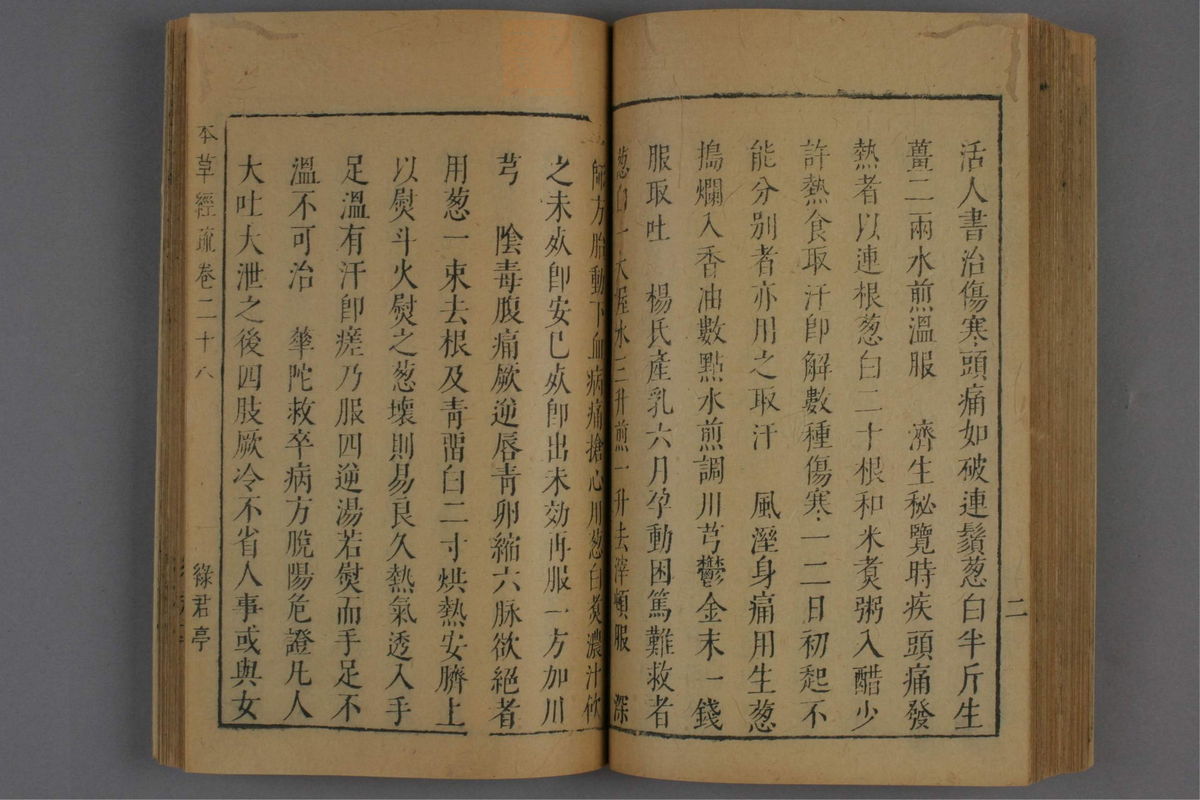 活人書治傷寒頭痛如破連鬚葱白半斤生
薑二兩水煎溫服　濟生秘覽時疾頭痛發
熱者以連根葱白二十根和米煮粥入醋少
許熱食取汗卽解數種傷寒一二日初起不
能分別者亦用之取汗　風溼身痛用生葱
搗爛入香油數點水煎調川芎鬱金末一錢
服取吐　楊氏產乳六月孕動困篤難救者
葱白一大握水三升煎一升去滓頓服　深
師方胎動下血病痛搶心用葱白煑濃汁飲
之未死卽安已死卽出未効再服一方加川
芎　陰毒腹痛厥逆唇青卵縮六脉欲絕者
用葱一束去根及青畱白二寸烘熱安臍上
以熨斗火熨之葱壞則易良久熱氣透入手
足溫有汗卽瘥乃服四逆湯若熨而手足不
溫不可治　華陀救卒病方脫陽危證凡人
大吐大泄之後四肢厥冷不省人事或與女
本草經疏卷二十八
綠君亭
二